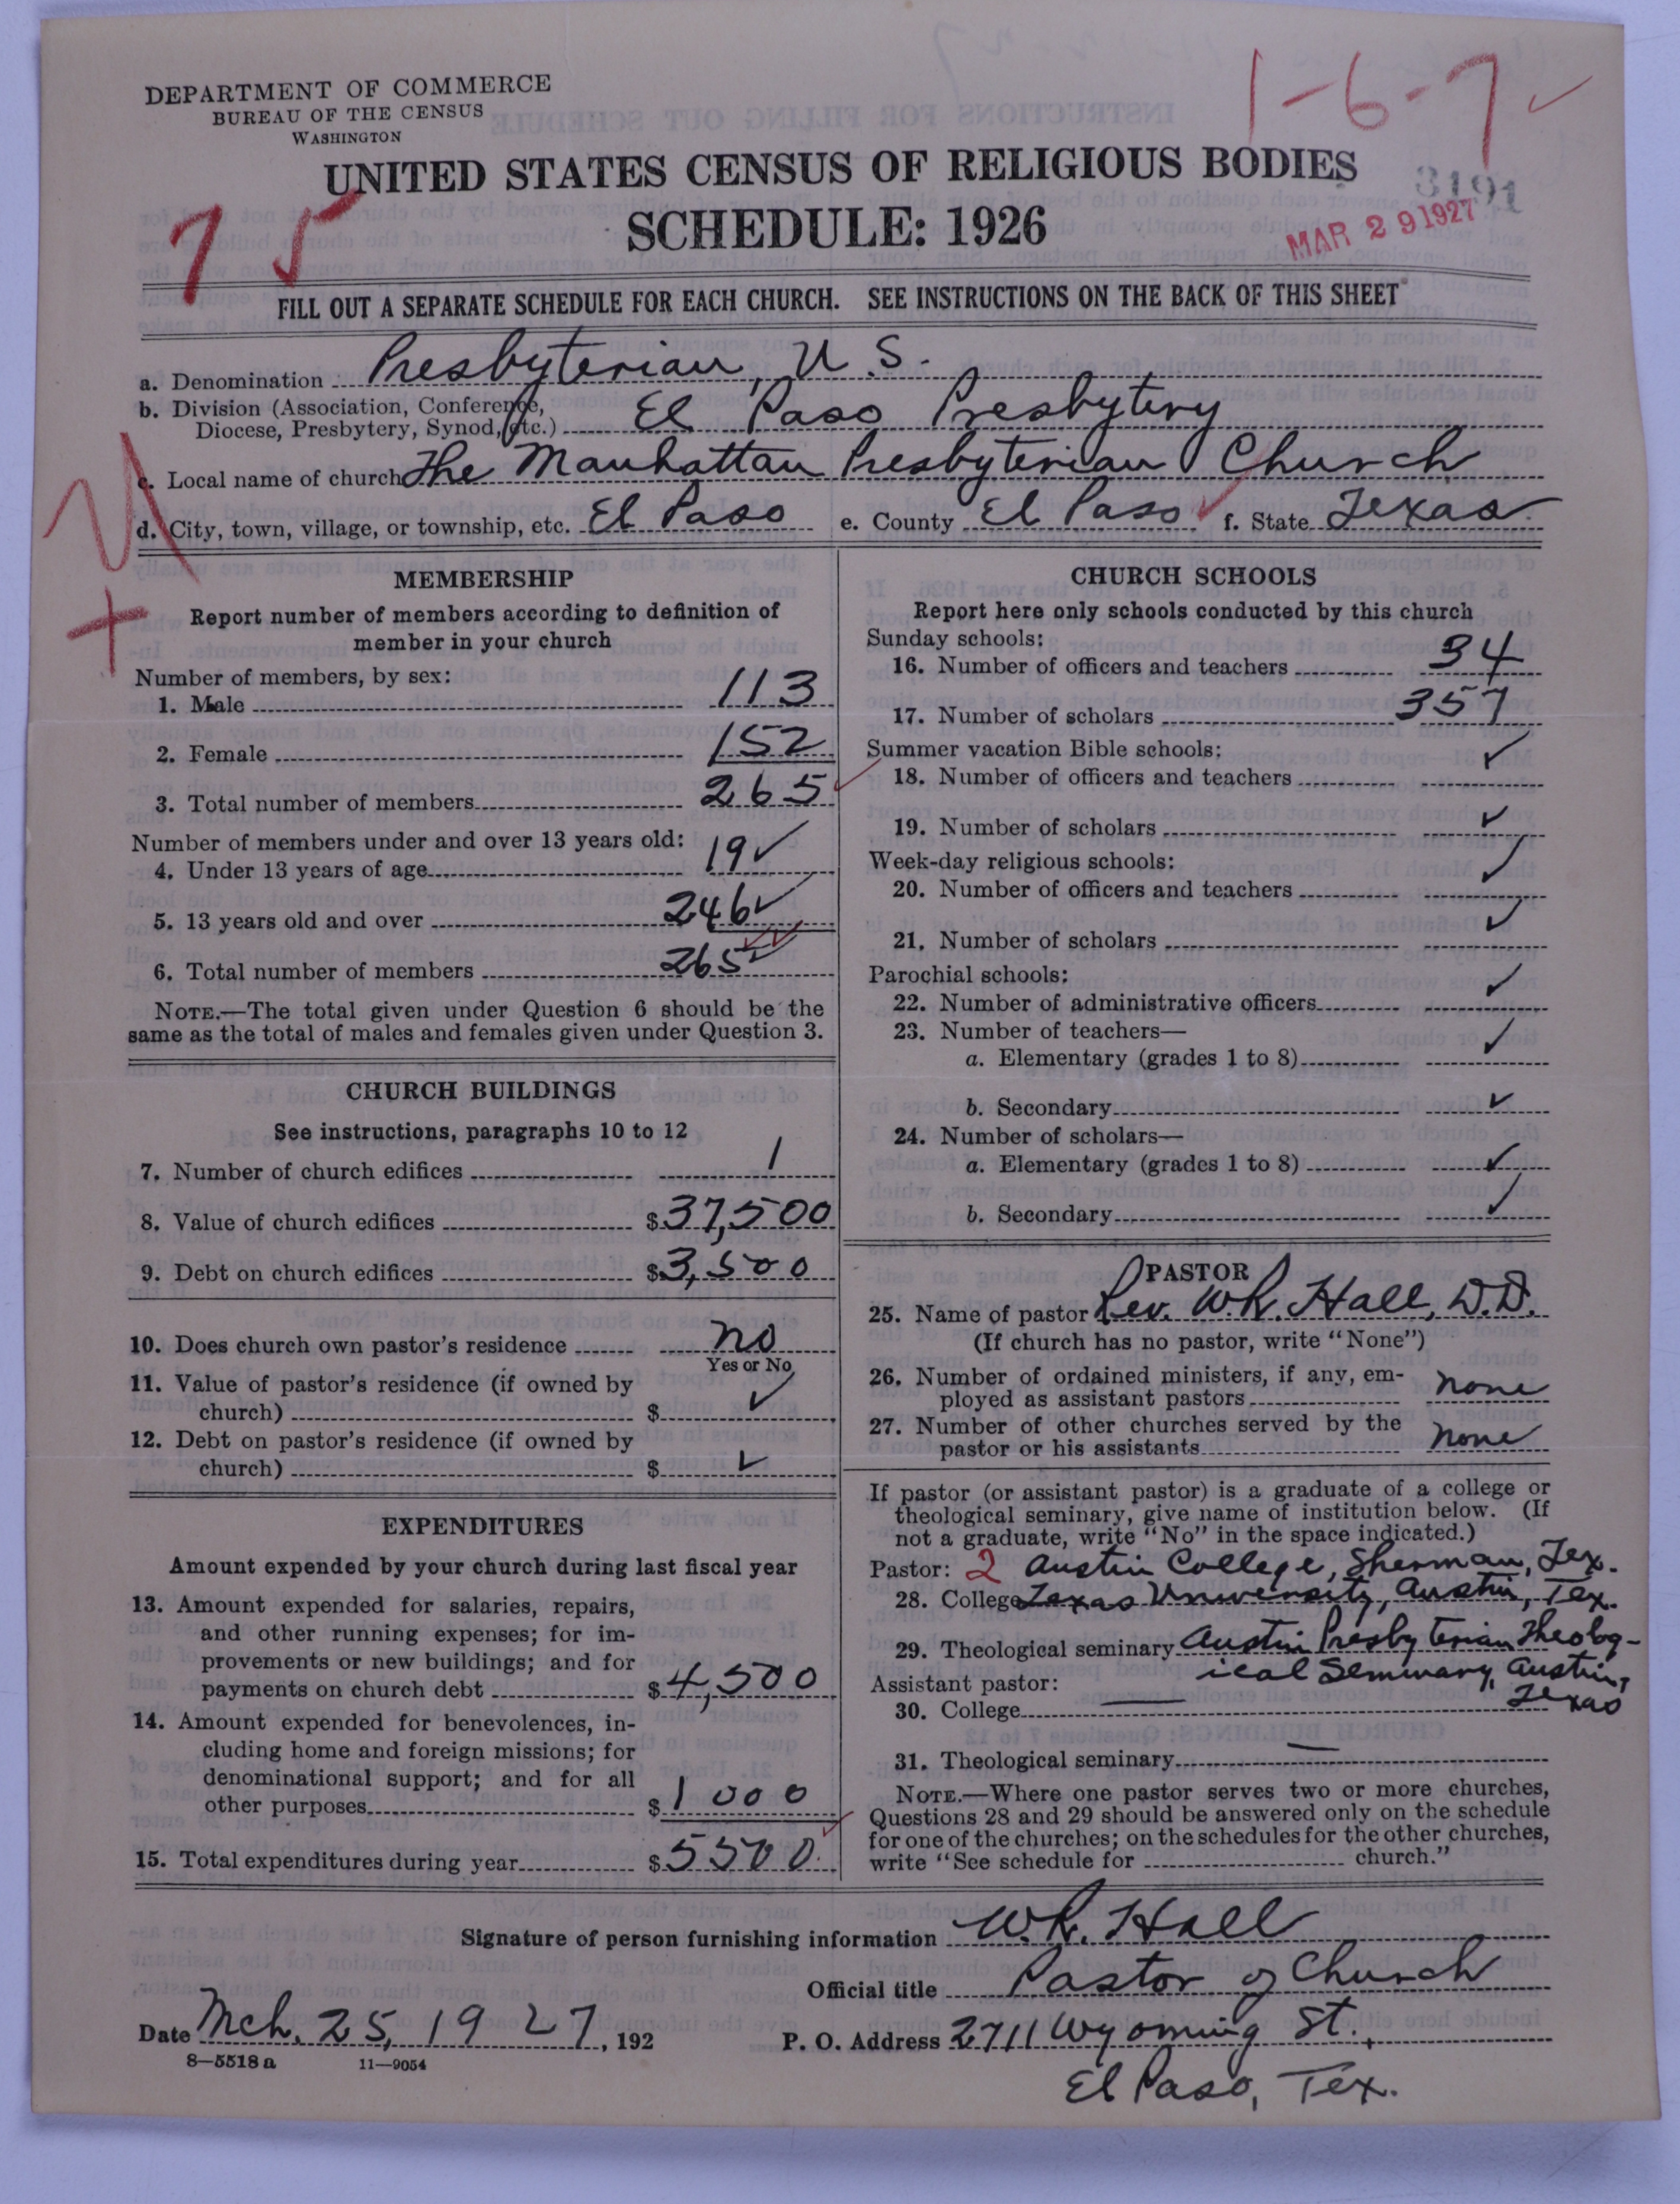 DEPARTMENT OF COMMERCE
BUREAU OF THE CENSUS
WASHINGTON
1-6-7
UNITED STATES CENSUS OF RELIGIOUS BODIES
3191
SCHEDULE: 1926
MAR 29 1927
75
FILL OUT A SEPARATE SCHEDULE FOR EACH CHURCH. SEE INSTRUCTIONS ON THE BACK OF THIS SHEET
a. Denomination Presbyterian, U.S.
b. Division (Association, Conference,
Diocese, Presbytery, Synod, etc.) El Paso Presbytery
c. Local name of church The Manhattan Presbyterian Church
d. City, town, village, or township, etc. El Paso e. County El Paso f. State Texas
MEMBERSHIP
Report number of members according to definition of
member in your church
Number of members, by sex:
1. Male 113
2. Female 152
3. Total number of members 265
Number of members under and over 13 years old:
4. Under 13 years of age 19 ✓
5. 13 years old and over 246 ✓
6. Total number of members 265 ✓
NOTE.—The total given under Question 6 should be the
same as the total of males and females given under Question 3.
CHURCH BUILDINGS
See instructions, paragraphs 10 to 12
7. Number of church edifices 1
8. Value of church edifices $37,500
9. Debt on church edifices $3,500
10. Does church own pastor's residence no
Yes or No
11. Value of pastor's residence (if owned by
church) $ ✓
12. Debt on pastor's residence (if owned by
church) $ ✓
EXPENDITURES
Amount expended by your church during last fiscal year
13. Amount expended for salaries, repairs,
and other running expenses; for im-
provements or new buildings; and for
payments on church debt $4,500
14. Amount expended for benevolences, in-
cluding home and foreign missions; for
denominational support; and for all
other purposes $1000
15. Total expenditures during year $5500.
CHURCH SCHOOLS
Report here only schools conducted by this church
Sunday schools:
16. Number of officers and teachers 34
17. Number of scholars 357
Summer vacation Bible schools:
18. Number of officers and teachers ✓
19. Number of scholars ✓
Week-day religious schools:
20. Number of officers and teachers ✓
21. Number of scholars ✓
Parochial schools:
22. Number of administrative officers ✓
23. Number of teachers—
a. Elementary (grades 1 to 8) ✓
b. Secondary ✓
24. Number of scholars—
a. Elementary (grades 1 to 8) ✓
b. Secondary ✓
PASTOR
25. Name of pastor Rev. W.R. Hall, D.D.
(If church has no pastor, write "None")
26. Number of ordained ministers, if any, em-
ployed as assistant pastors none
27. Number of other churches served by the
pastor or his assistants none
If pastor (or assistant pastor) is a graduate of a college or
theological seminary, give name of institution below. (If
not a graduate, write "No" in the space indicated.)
Pastor: 2 Austin College, Sherman, Tex.
28. College Texas University, Austin, Tex.
29. Theological seminary Austin Presbyterian Theolog-
ical Seminary, Austin,
Assistant pastor:
Texas
30. College —
31. Theological seminary —
NOTE.—Where one pastor serves two or more churches,
Questions 28 and 29 should be answered only on the schedule
for one of the churches; on the schedules for the other churches,
write "See schedule for church."
Signature of person furnishing information W.R. Hall
Official title Pastor of Church
Date Mch. 25, 1927, 192 P. O. Address 2711 Wyoming St.,
8—5518 a 11—9054
El Paso, Tex.